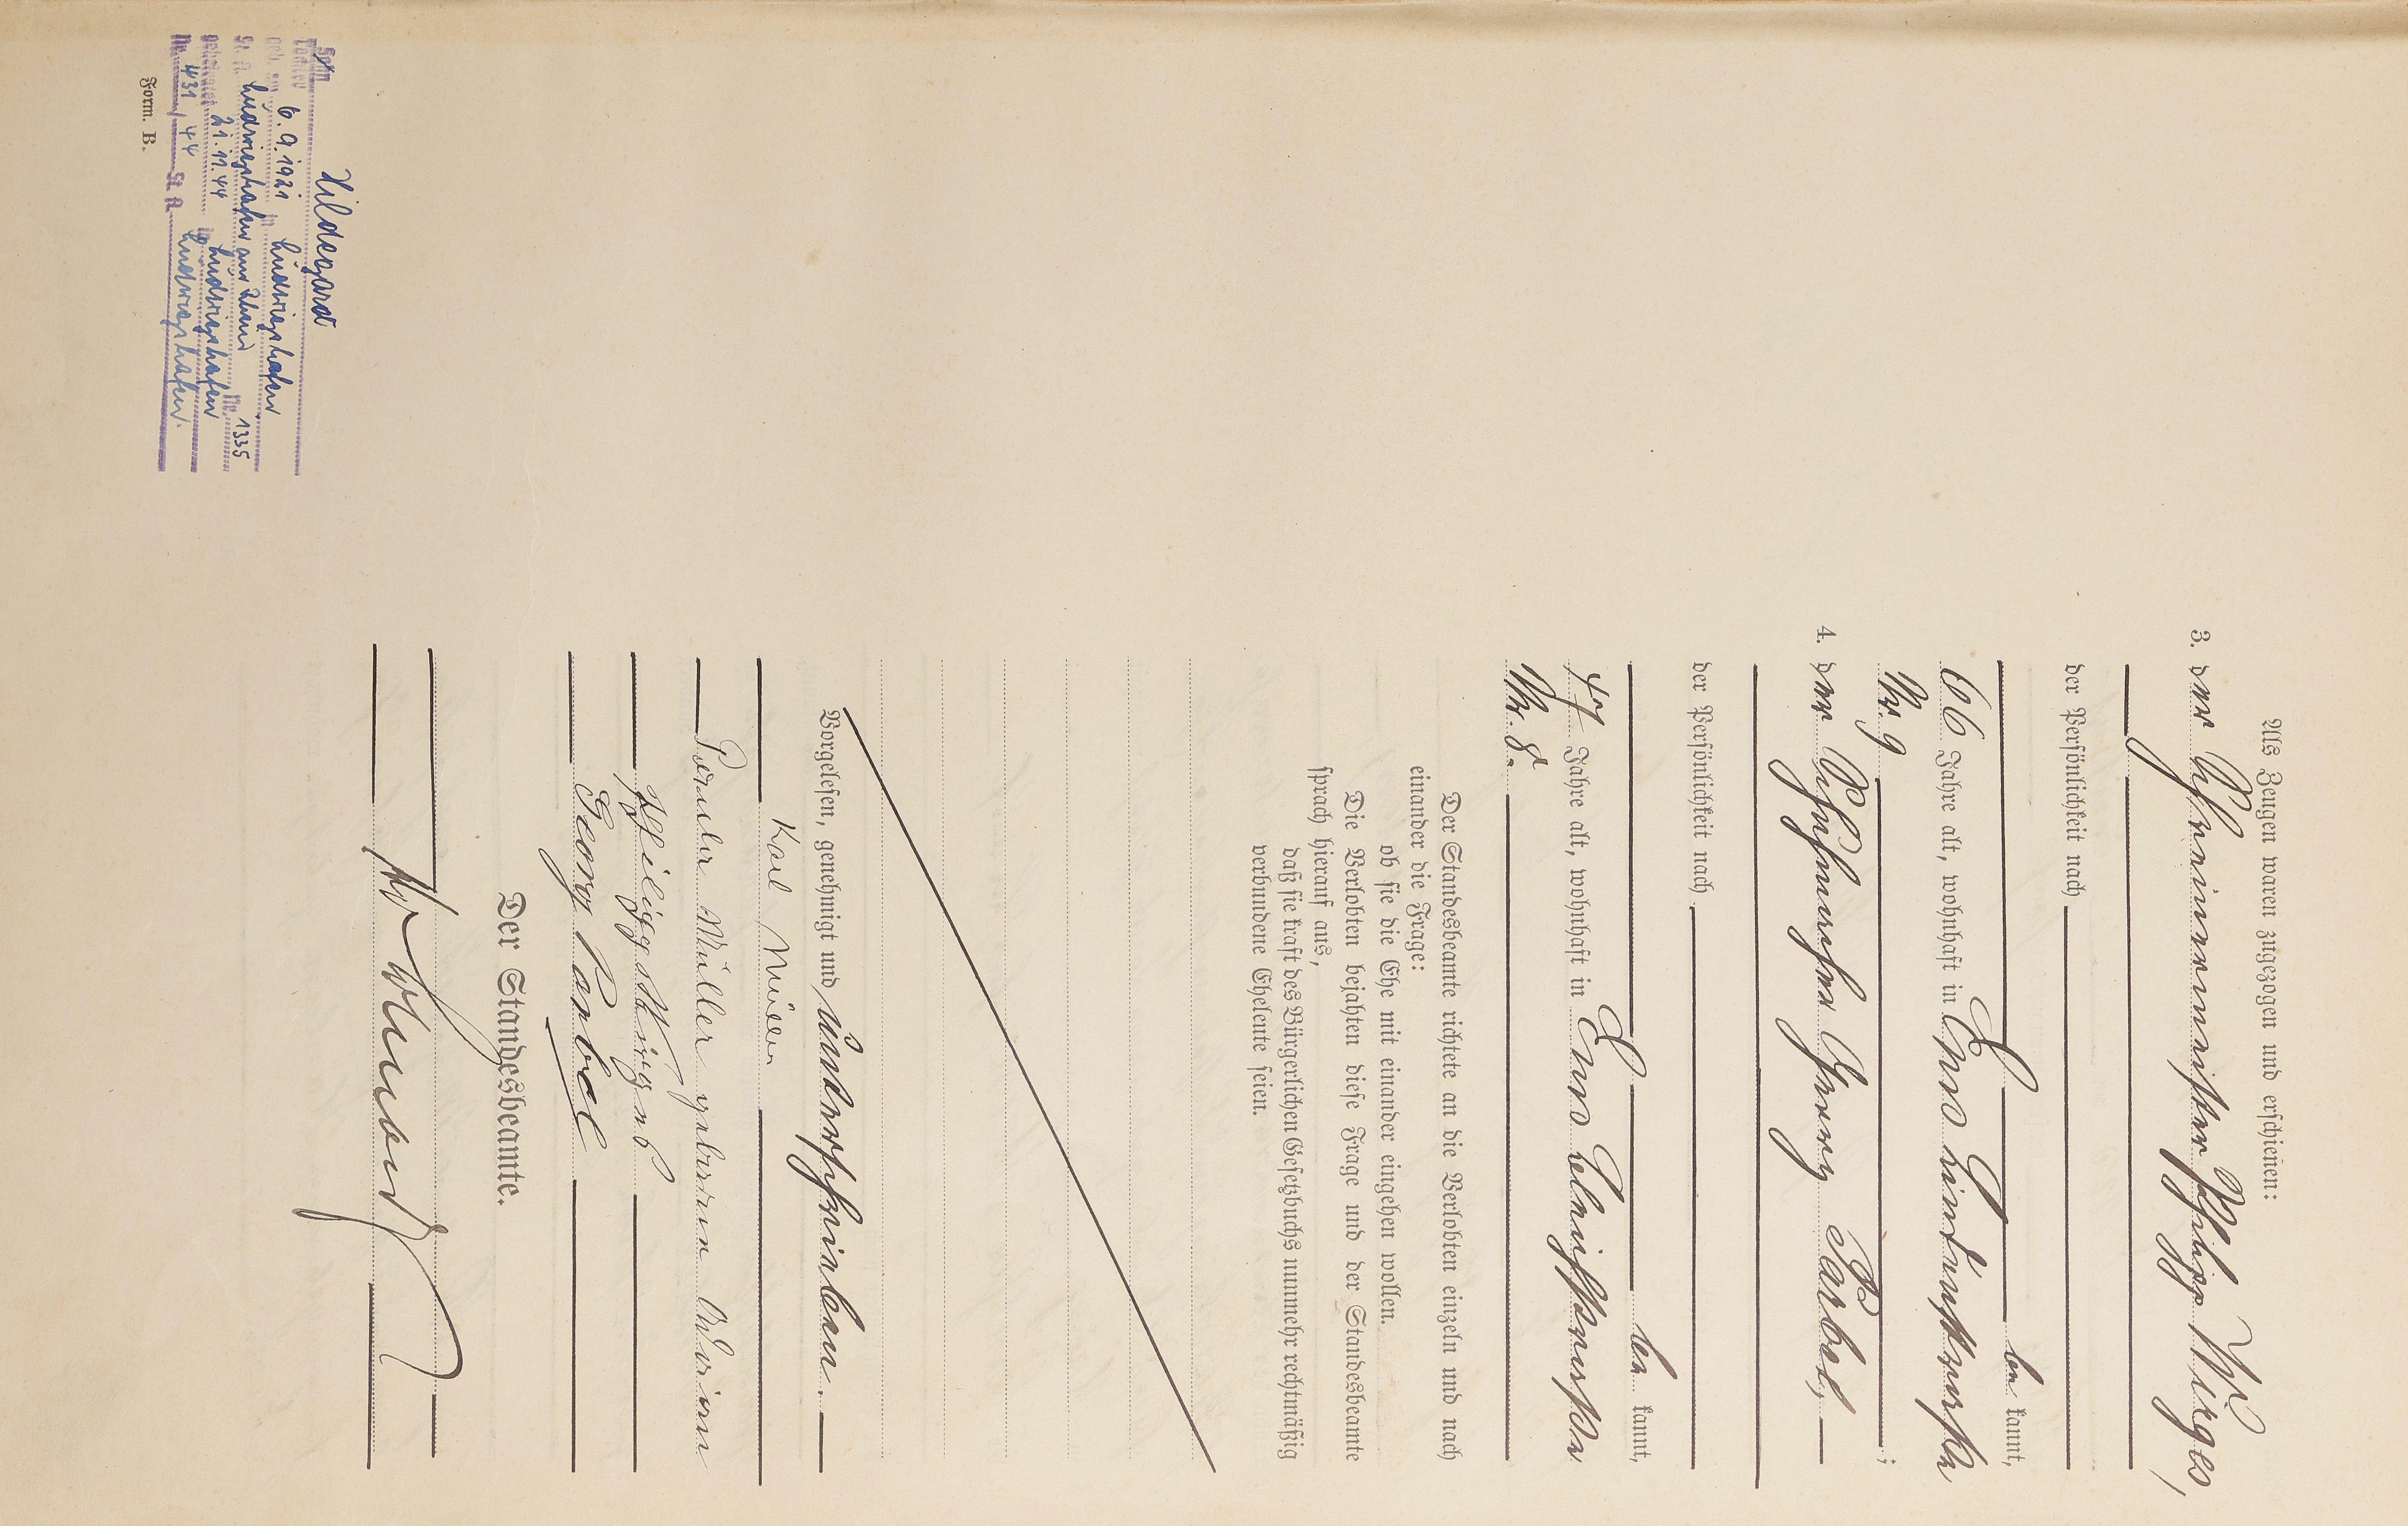 Als Zeugen waren zugezogen und erschienen:
3. der Schreinermeister Philipp Wirges,
der Persönlichkeit nach
be kannt,
66 Jahre alt, wohnhaft in Ems,
Nr. 9 ;
4. der Schuhmacher Georg Barbel,
der Persönlichkeit nach
be kannt,
47 Jahre alt, wohnhaft in Ems,
Nr. 8.
Der Standesbeamte richtete an die Verlobten einzeln und nach
einander die Frage:
ob sie die Ehe mit einander eingehen wollen.
Die Verlobten bejahten diese Frage und der Standesbeamte
sprach hierauf aus,
daß sie kraft des Bürgerlichen Gesetzbuchs nunmehr rechtmäßig
verbundene Eheleute seien.
Vorgelesen, genehmigt und unterschrieben.
Karl Müller
Müller geborene
Philipp Wirges
Georg Barbel
Der Standesbeamte.
Hildegard
Sohn
Tochter
geb. am 6.9.1921 in Ludwigshafen
St. A. Ludwigshafen am Rhein Nr. 1335
geheiratet 21.11.44 in Ludwigshafen
Nr. 431/44 St. A. Ludwigshafen
Form. B.